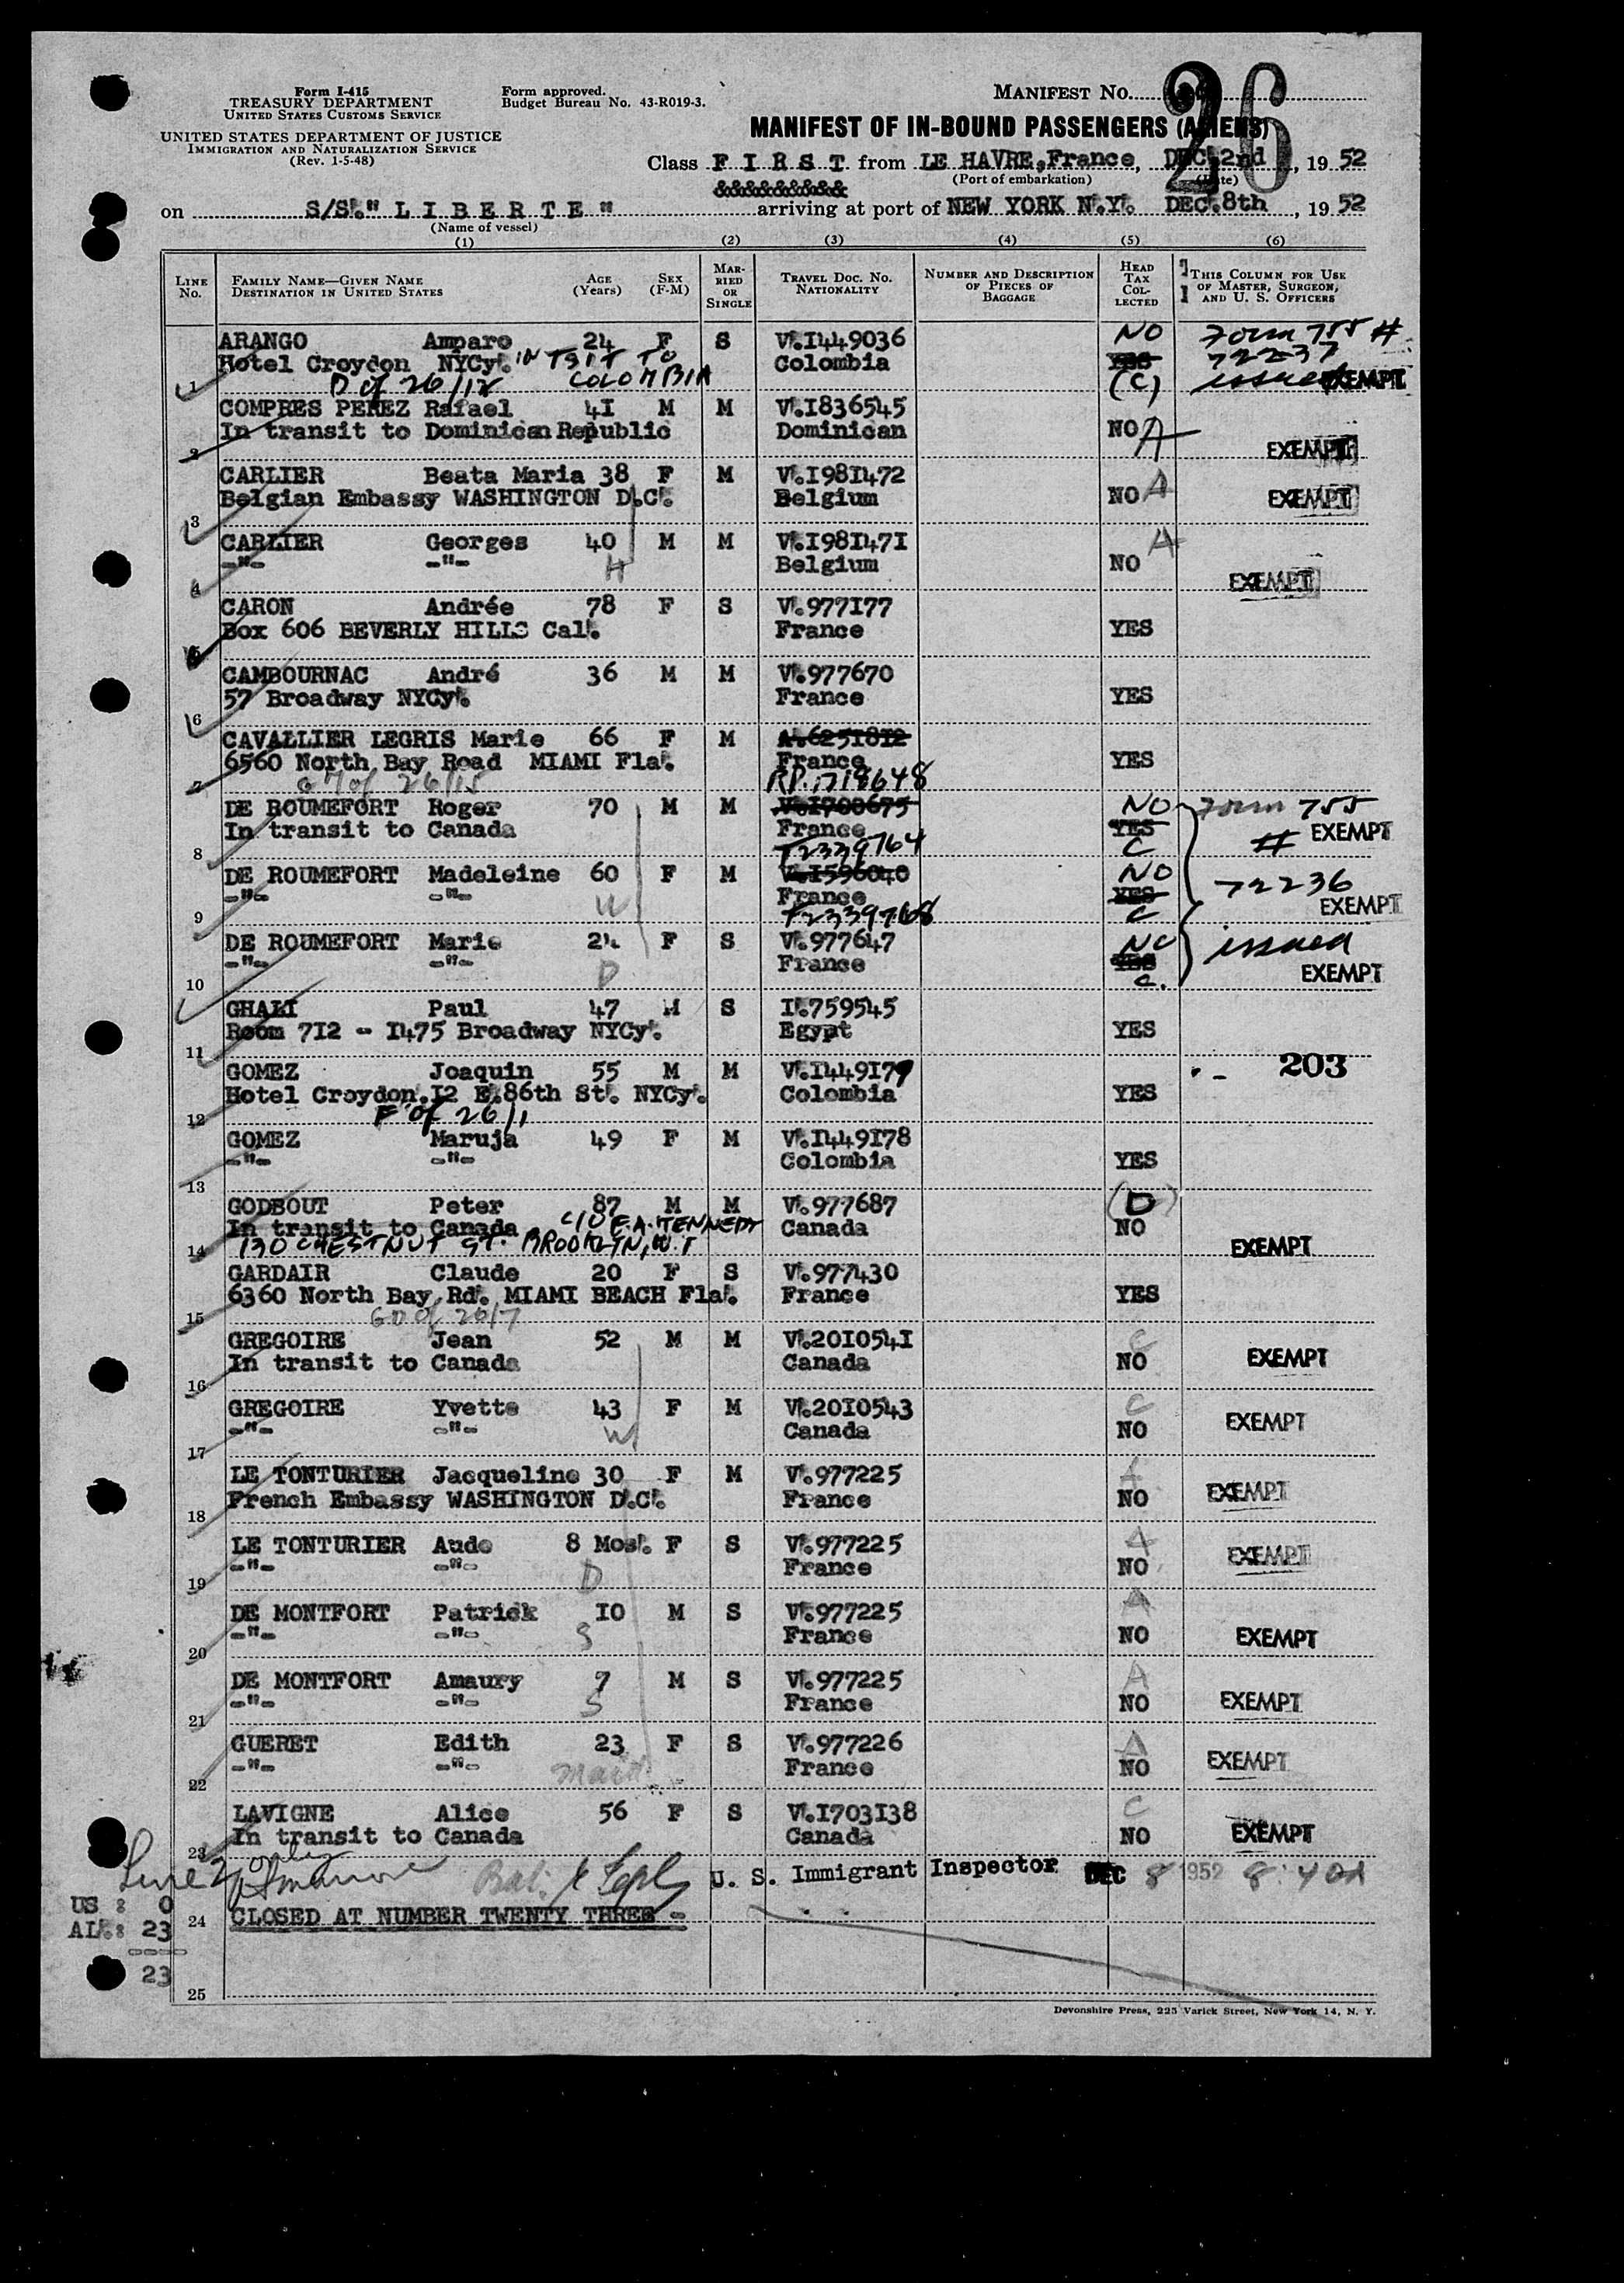 Form I-415
TREASURY DEPARTMENT
UNITED STATES CUSTOMS SERVICE
UNITED STATES DEPARTMENT OF JUSTICE
IMMIGRATION AND NATURALIZATION SERVICE
(Rev. 1-5-48)
Form approved.
Budget Bureau No. 43-R019-3.
MANIFEST NO. 26
MANIFEST OF IN-BOUND PASSENGERS (ALIENS)
Class F I R S T from LE HAVRE, France, DEC. 2nd, 19 52
(Port of embarkation) (Date)
&&&&&&&&&&
on S/S." L I B E R T E " arriving at port of NEW YORK N.Y. DEC. 8th, 19 52
(Name of vessel)
(1) (2) (3) (4) (5) (6)
LINE No. FAMILY NAME—GIVEN NAME DESTINATION IN UNITED STATES AGE (Years) SEX (F-M) MARRIED OR SINGLE TRAVEL DOC. NO. NATIONALITY NUMBER AND DESCRIPTION OF PIECES OF BAGGAGE HEAD TAX COLLECTED THIS COLUMN FOR USE OF MASTER, SURGEON, AND U. S. OFFICERS
ARANGO Amparo 24 F S V.I449036 NO Form 755 #
Hotel Croydon NYCy. IN TSIT TO Colombia YES 72237
1 D of 26/12 COLOMBIA (C) issued EXEMPT
COMPRES PEREZ Rafael 41 M M V.I836545
In transit to Dominican Republic Dominican NO A
2 EXEMPT
CARLIER Beata Maria 38 F M V.I981472
Belgian Embassy WASHINGTON D.C. Belgium NO A EXEMPT
3
CARLIER Georges 40 M M V.I981471 A
-"- -"- H Belgium NO
4 EXEMPT
CARON Andrée 78 F S V.977177
Box 606 BEVERLY HILLS Cal. France YES
5
CAMBOURNAC André 36 M M V.977670
57 Broadway NYCy. France YES
6
CAVALLIER LEGRIS Marie 66 F M A.6251812
6560 North Bay Road MIAMI Fla. France YES
7 GM of 26/15 RP.1718648
DE ROUMEFORT Roger 70 M M V.I708675 NO Form 755
In transit to Canada France YES # EXEMPT
8 T2339764 C
DE ROUMEFORT Madeleine 60 F M V.I596040 NO 72236
-"- -"- W France YES EXEMPT
9 T2339768 C
DE ROUMEFORT Marie 24 F S V.977647 NO issued
-"- -"- D France YES EXEMPT
10 C.
GHALI Paul 47 M S I.759545
Room 7I2 - I475 Broadway NYCy. Egypt YES
11
GOMEZ Joaquin 55 M M V.I449179 203
Hotel Croydon.I2 E.86th St. NYCy. Colombia YES
12 F of 26/1
GOMEZ Maruja 49 F M V.I449I78
-"- -"- Colombia YES
13
GODBOUT Peter 87 M M V.977687 (D)
In transit to Canada C/O F.A. KENNEDY Canada NO
14 130 CHESTNUT ST. BROOKLYN, EXEMPT
GARDAIR Claude 20 F S V.977430
6360 North Bay Rd. MIAMI BEACH Fla. France YES
15 GD of 26/7
GREGOIRE Jean 52 M M V.20I0541 C
In transit to Canada Canada NO EXEMPT
16
GREGOIRE Yvette 43 F M V.20I0543 C
-"- -"- W Canada NO EXEMPT
17
LE TONTURIER Jacqueline 30 F M V.977225 A
French Embassy WASHINGTON D.C. France NO EXEMPT
18
LE TONTURIER Aude 8 Mos. F S V.977225 A
-"- -"- D France NO EXEMPT
19
DE MONTFORT Patrick IO M S V.977225 A
-"- -"- S France NO EXEMPT
20
DE MONTFORT Amaury 7 M S V.977225 A
-"- -"- S France NO EXEMPT
21
GUERET Edith 23 F S V.977226 A
-"- -"- maid France NO EXEMPT
22
LAVIGNE Alice 56 F S V.I703I38 C
In transit to Canada Canada NO EXEMPT
23
U. S. Immigrant Inspector DEC 8 1952 8:40A
US : 0
24 CLOSED AT NUMBER TWENTY THREE -
AL.: 23
23
25
Devonshire Press, 225 Varick Street, New York 14, N. Y.